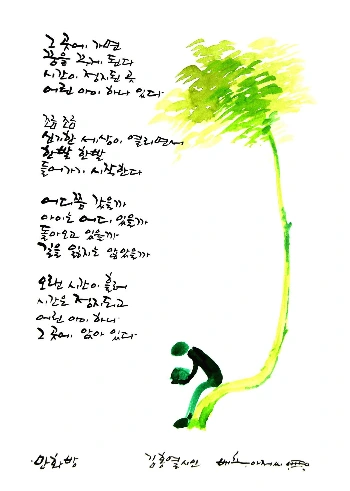 그 곳에 가면
꿈을 꾸게 된다
시간이 정지된 곳
어린 아이 하나 있다
좀 좀
신기한 세상이 열리면서
한발 한발
들어가기 시작한다
어디쯤 갔을까
아이는 어디 있을까
돌아오고 있을까
길을 잃지는 않았을까
오랜 시간이 흘러
시간은 정지되고
어린 아이 하나
그 곳에 앉아 있다
만화방
김홍열 시인
아저씨